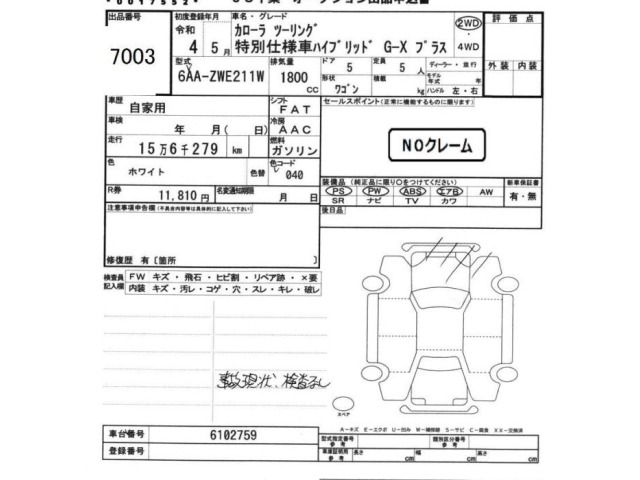 出品番号 7003
初度登録年月 令和 4 年 5 月
車名・グレード カローラ ツーリング
特別仕様車ハイブリッド G-X プラス
2WD・4WD
評価点
外装 内装
型式 6AA-ZWE211W
排気量 1800 CC
ドア 5
定員 5 人
ディーラー・並行
形状 ワゴン
積載 kg
モデル年式 年
ハンドル 左・右
車歴 自家用
シフト FAT
セールスポイント(正常に機能するものに限ります)
車検 年 月( 日)
冷房 AAC
走行 15万6千279 km
燃料 ガソリン
NOクレーム
色 ホワイト 色替
色コード 040
R券 11,810 円
名変通知期限 月 日
装備品(純正品に限り○をつけてください)
PS PW ABS エアB AW
SR ナビ TV カワ
新車保証書 有・無
注意事項申告欄(不具合内容等は具体的に記入して下さい)
後日品
修復歴 有[箇所 ]
検査員記入欄
FW キズ・飛石・ヒビ割・リペア跡・×要
内装 キズ・汚レ・コゲ・穴・スレ・キレ・破レ
事故現状、検査なし
スペア
A-キズ E-エクボ U-凹み W-補修跡 S-サビ C-腐食 XX-交換済
車台番号 6102759
登録番号
型式指定番号 参考
類別区分番号 参考
車庫証明用 参考 長さ cm 幅 cm 高さ cm